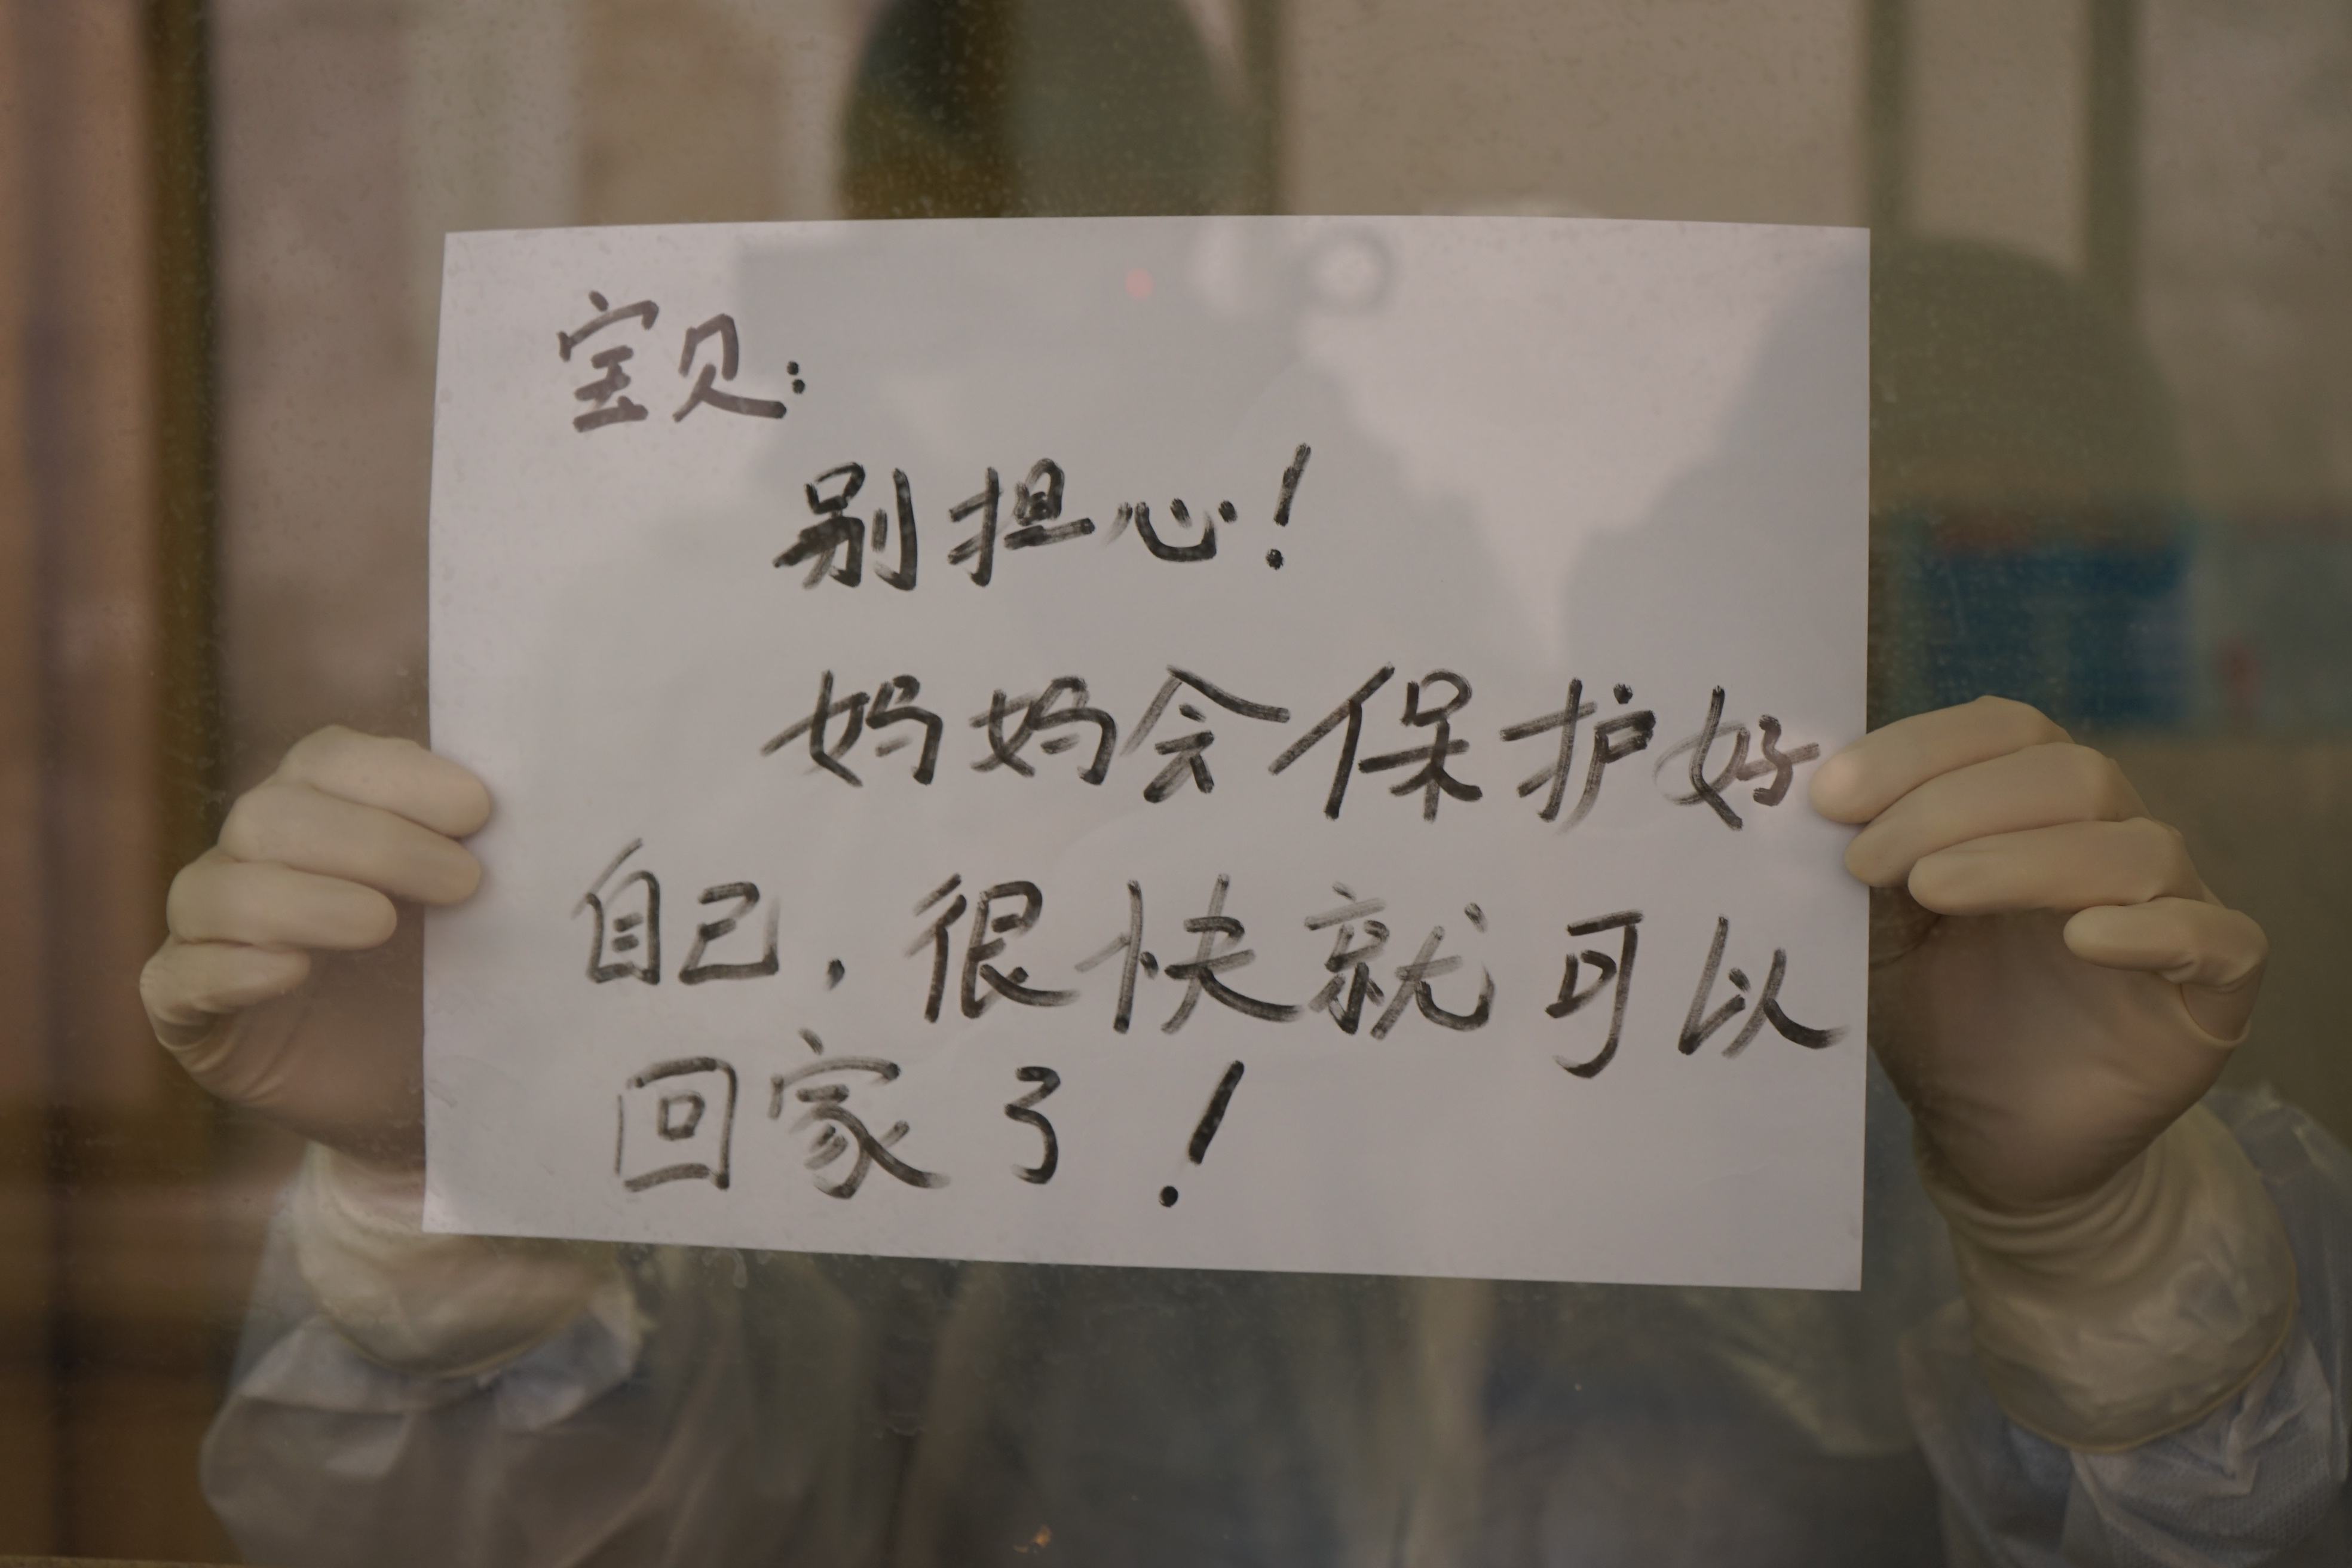 宝贝:
别担心!
妈妈会保护好
自己,很快就可以
回家了!